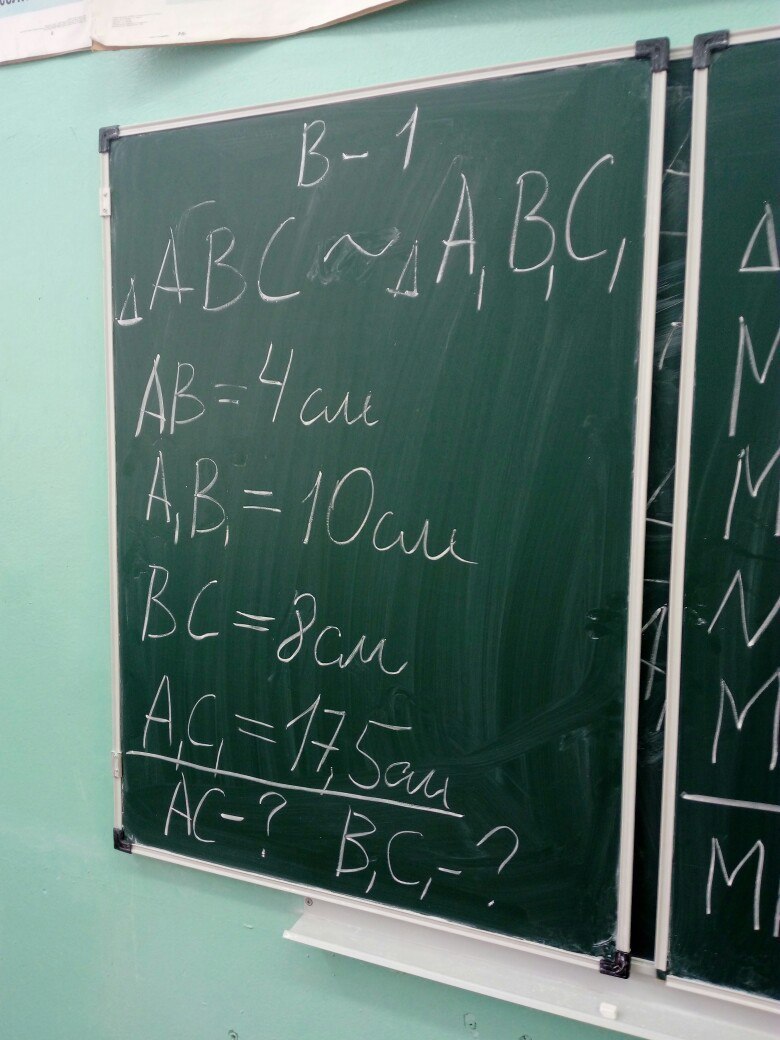 В - 1
△ABC ~ △A₁B₁C₁
AB = 4 см
A₁B₁ = 10 см
BC = 8 см
A₁C₁ = 17,5 см
AC - ? B₁C₁ - ?